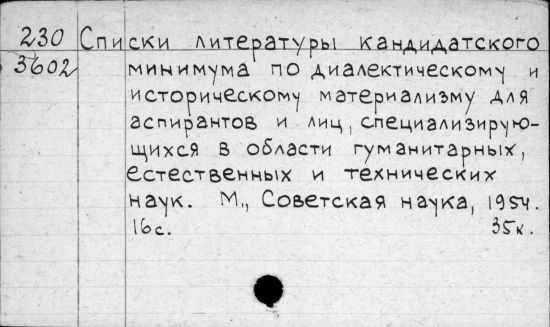 230 Списки литературы кандидатского
3602 минимума по диалектическому и
историческому материализму для
аспирантов и лиц, специализирую-
щихся в области гуманитарных,
естественных и технических
наук. М., Советская наука, 1954.
16с. 35к.